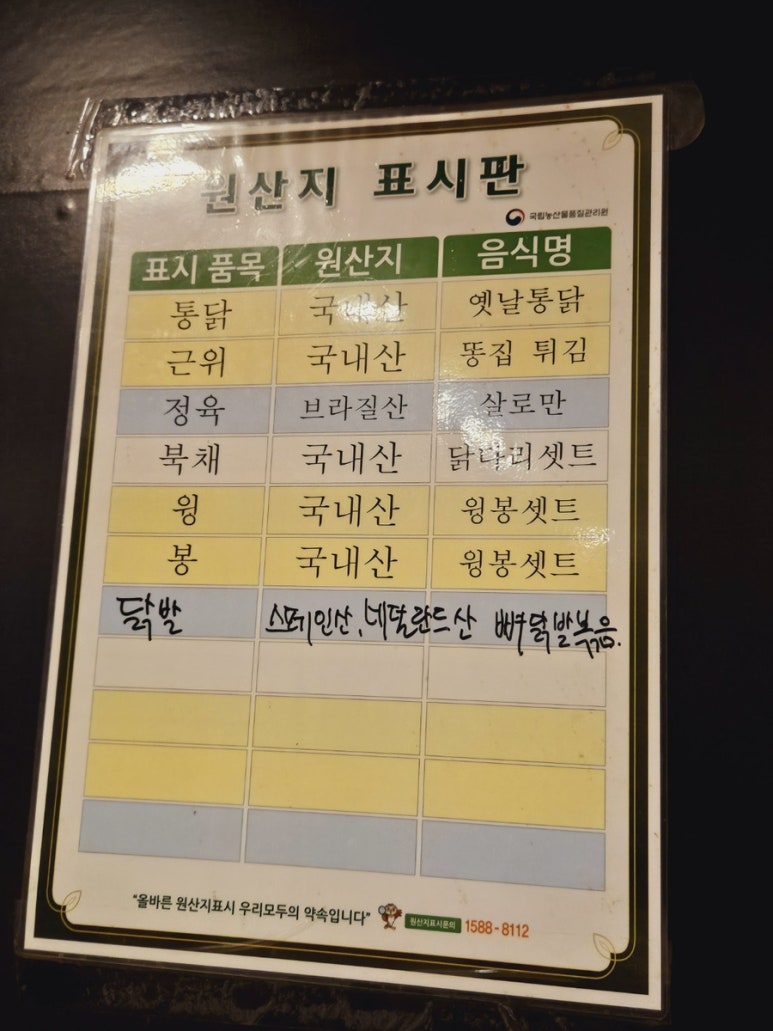 원산지 표시판
국립농산물품질관리원
표시 품목 원산지 음식명
통닭 국내산 옛날통닭
근위 국내산 똥집 튀김
정육 브라질산 살로만
북채 국내산 닭다리셋트
윙 국내산 윙봉셋트
봉 국내산 윙봉셋트
닭발 스페인산, 네덜란드산 뼈닭발볶음.
"올바른 원산지표시 우리모두의 약속입니다" 원산지표시문의 1588-8112